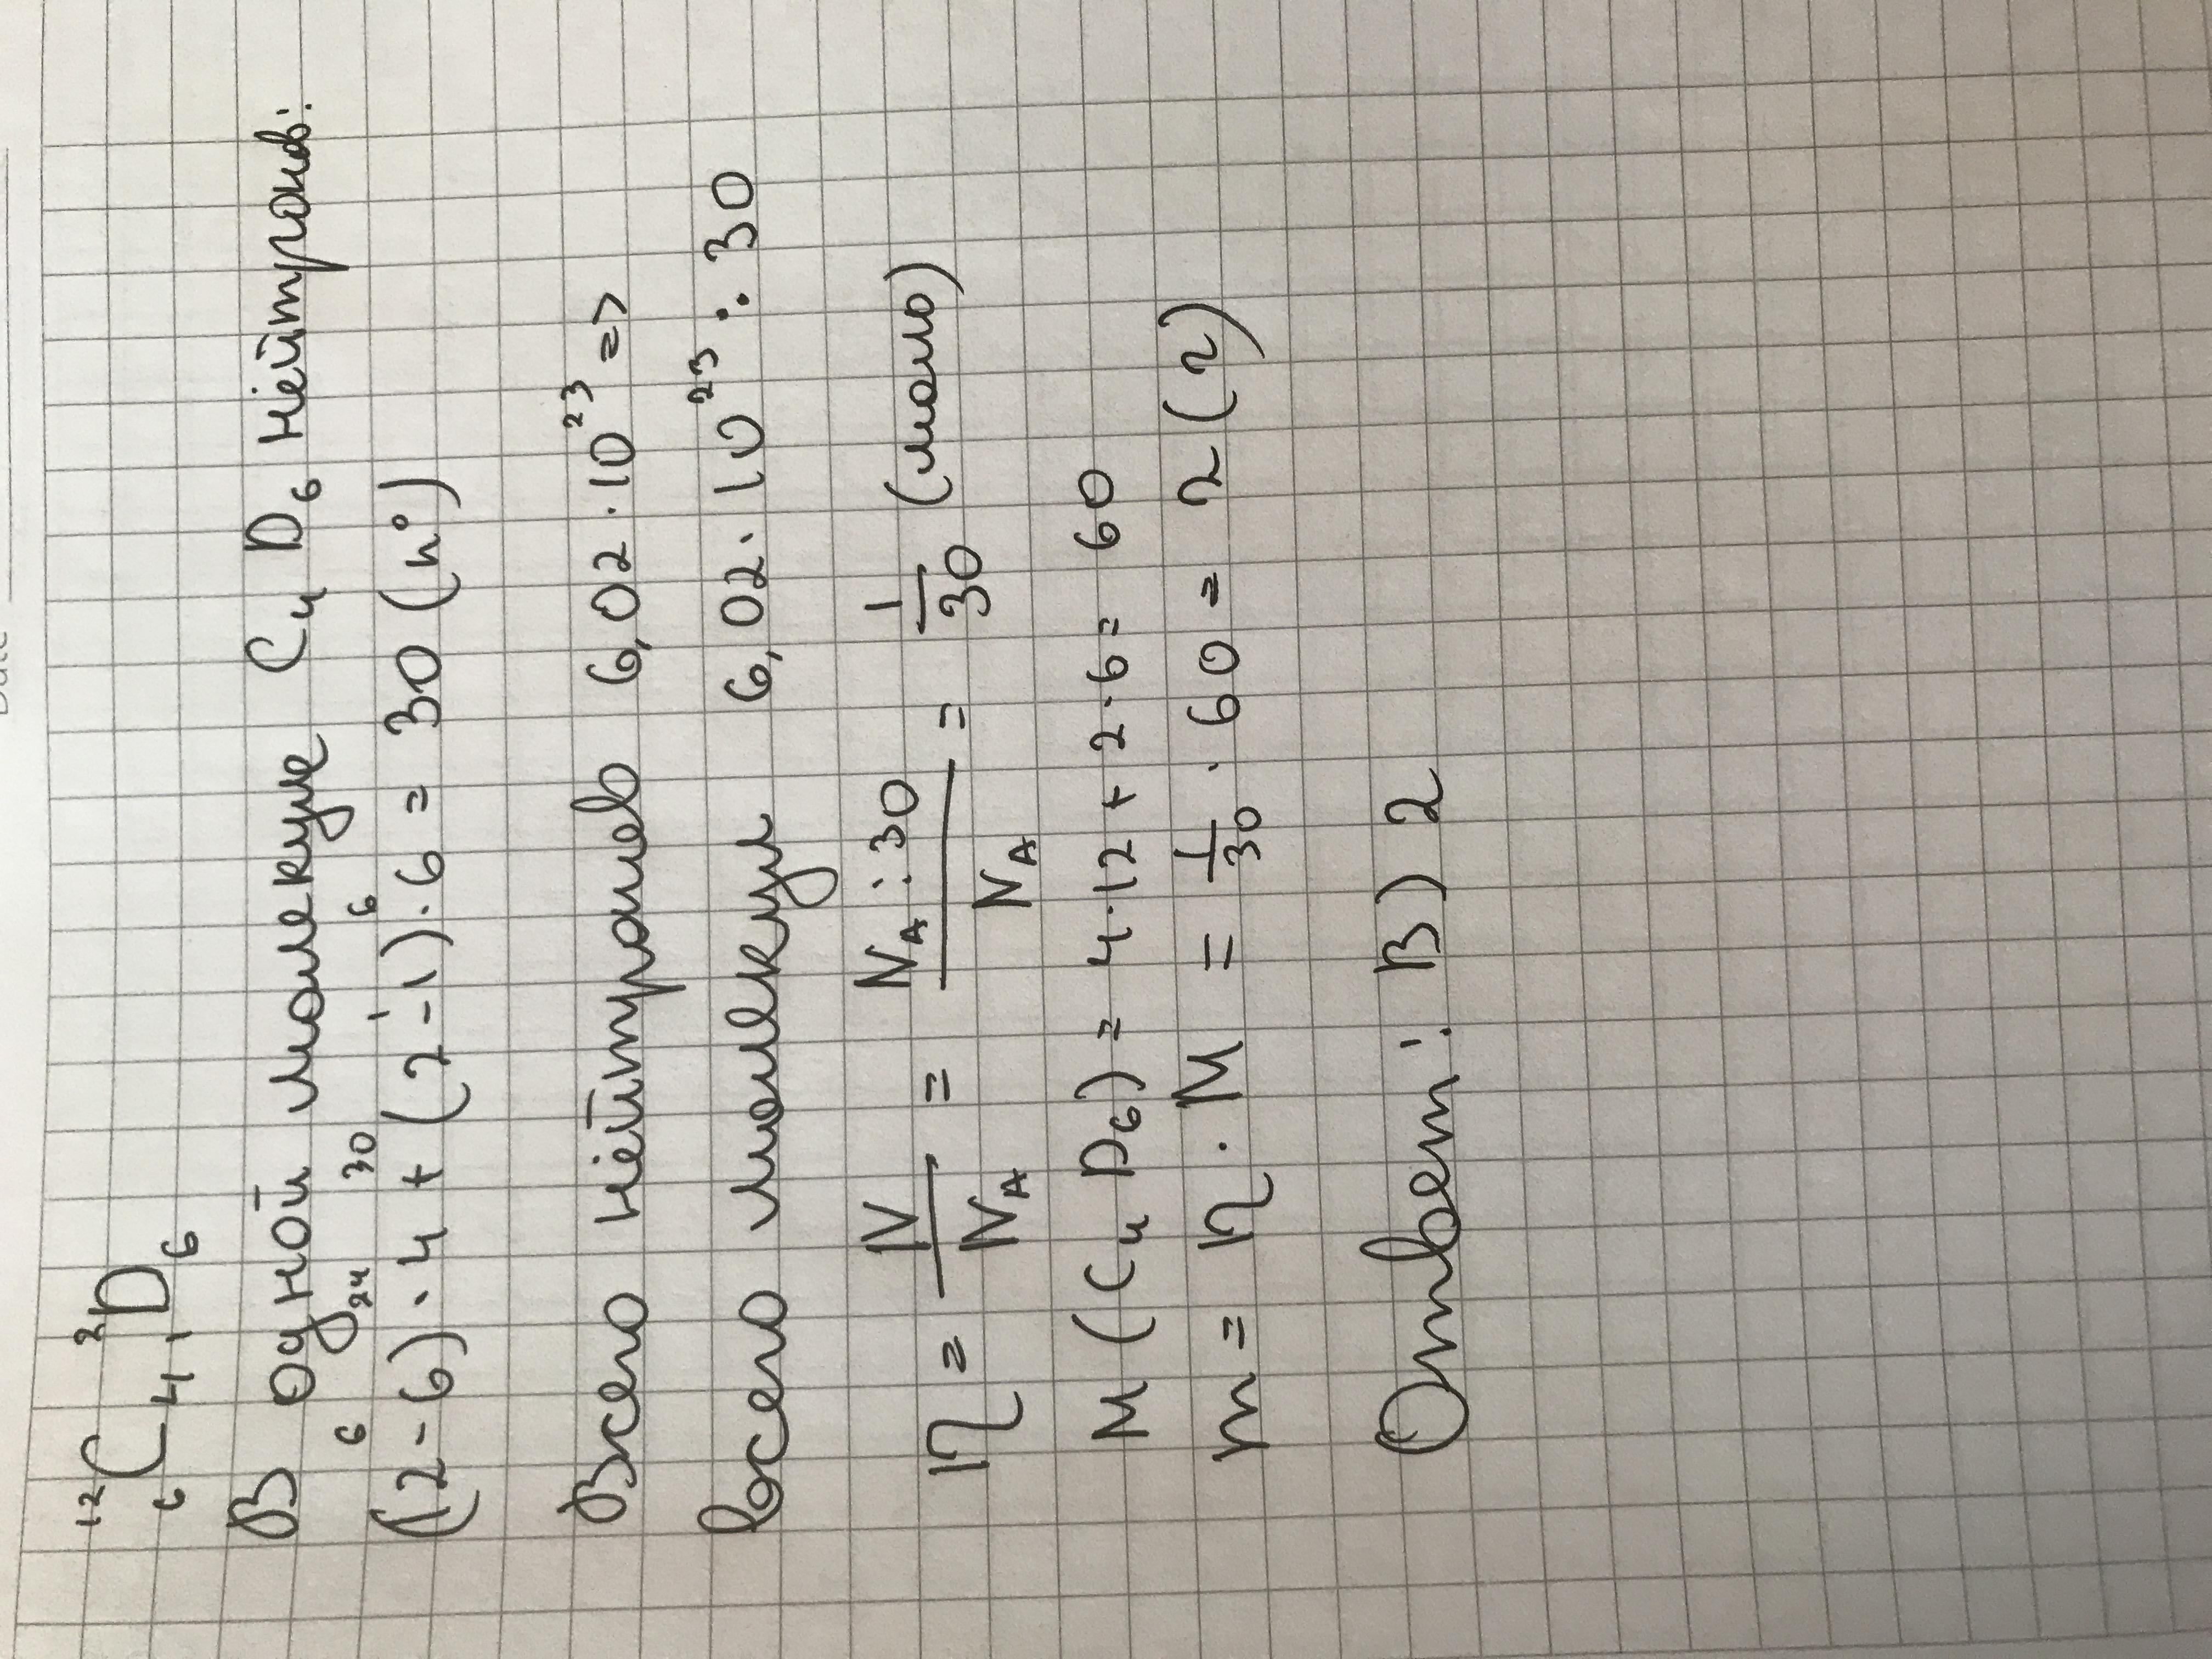 ¹²₆C₄ ²₁D₆
В одной молекуле C₄D₆ нейтронов:
(12-6)·4 + (2-1)·6 = 30 (n⁰)
6 24 30 1 6
Всего нейтронов 6,02·10²³ =>
Всего молекул 6,02·10²³ : 30
n = N/N_A = N_A:30/N_A = 1/30 (моль)
M(C₄D₆) = 4·12 + 2·6 = 60
m = n · M = 1/30 · 60 = 2 (г)
Ответ: В) 2